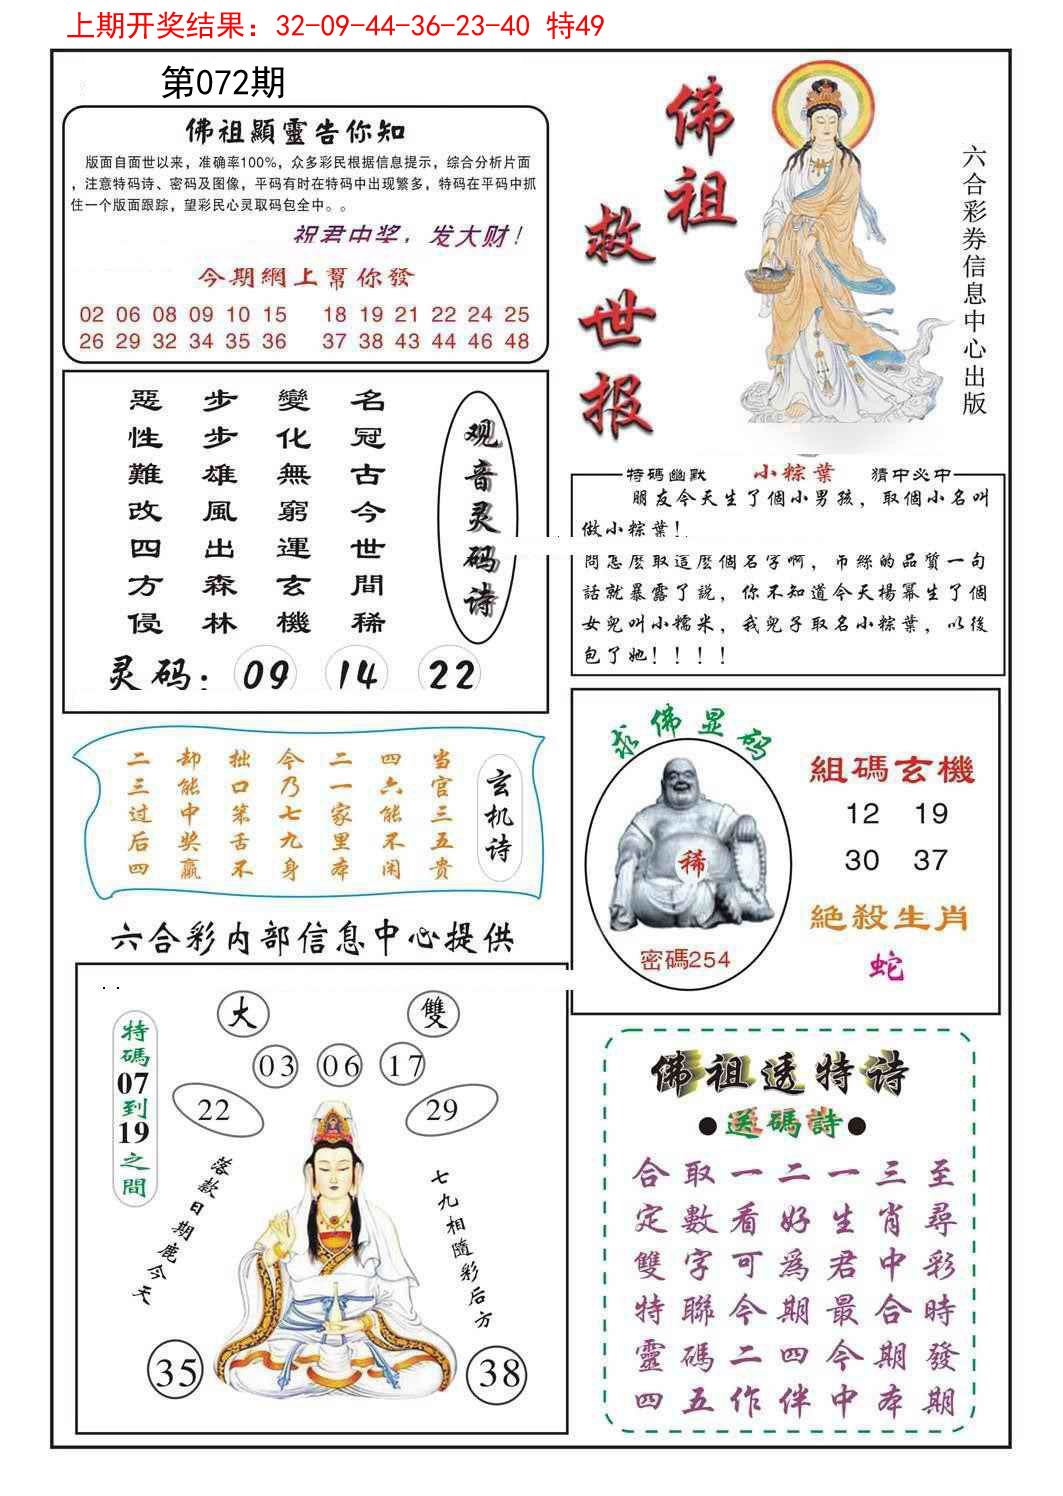 上期开奖结果：32-09-44-36-23-40 特49
第072期
佛祖顯靈告你知
版面自面世以来，准确率100%，众多彩民根据信息提示，综合分析片面
，注意特码诗、密码及图像，平码有时在特码中出现繁多，特码在平码中抓
住一个版面跟踪，望彩民心灵取码包全中。。
祝君中奖，发大财！
今期網上幫你發
02 06 08 09 10 15 18 19 21 22 24 25
26 29 32 34 35 36 37 38 43 44 46 48
佛祖
救世报
六合彩券信息中心出版
观音灵码诗
名冠古今世間稀
變化無窮運玄機
步步雄風出森林
惡性難改四方侵
灵码：09 14 22
特碼幽默 小粽葉 猜中必中
朋友今天生了個小男孩，取個小名叫
做小粽葉！
問怎麼取這麼個名字啊，吊絲的品質一句
話就暴露了説，你不知道今天楊冪生了個
女兒叫小糯米，我兒子取名小粽葉，以後
包了她！！！！
玄机诗
当官三五贵
四六能不闲
二一家里本
今乃七九身
拙口笨舌不
却能中奖赢
二三过后四
求佛显码
稀
密碼254
組碼玄機
12 19
30 37
絕殺生肖
蛇
六合彩内部信息中心提供
大 雙
特碼07到19之間
03 06 17
22 29
落款日期鹿今天
七九相隨彩后方
35 38
佛祖透特诗
●送碼詩●
合取一二一三至
定數看好生肖尋
雙字可為君中彩
特聯今期最合時
靈碼二四今期發
四五作伴中本期